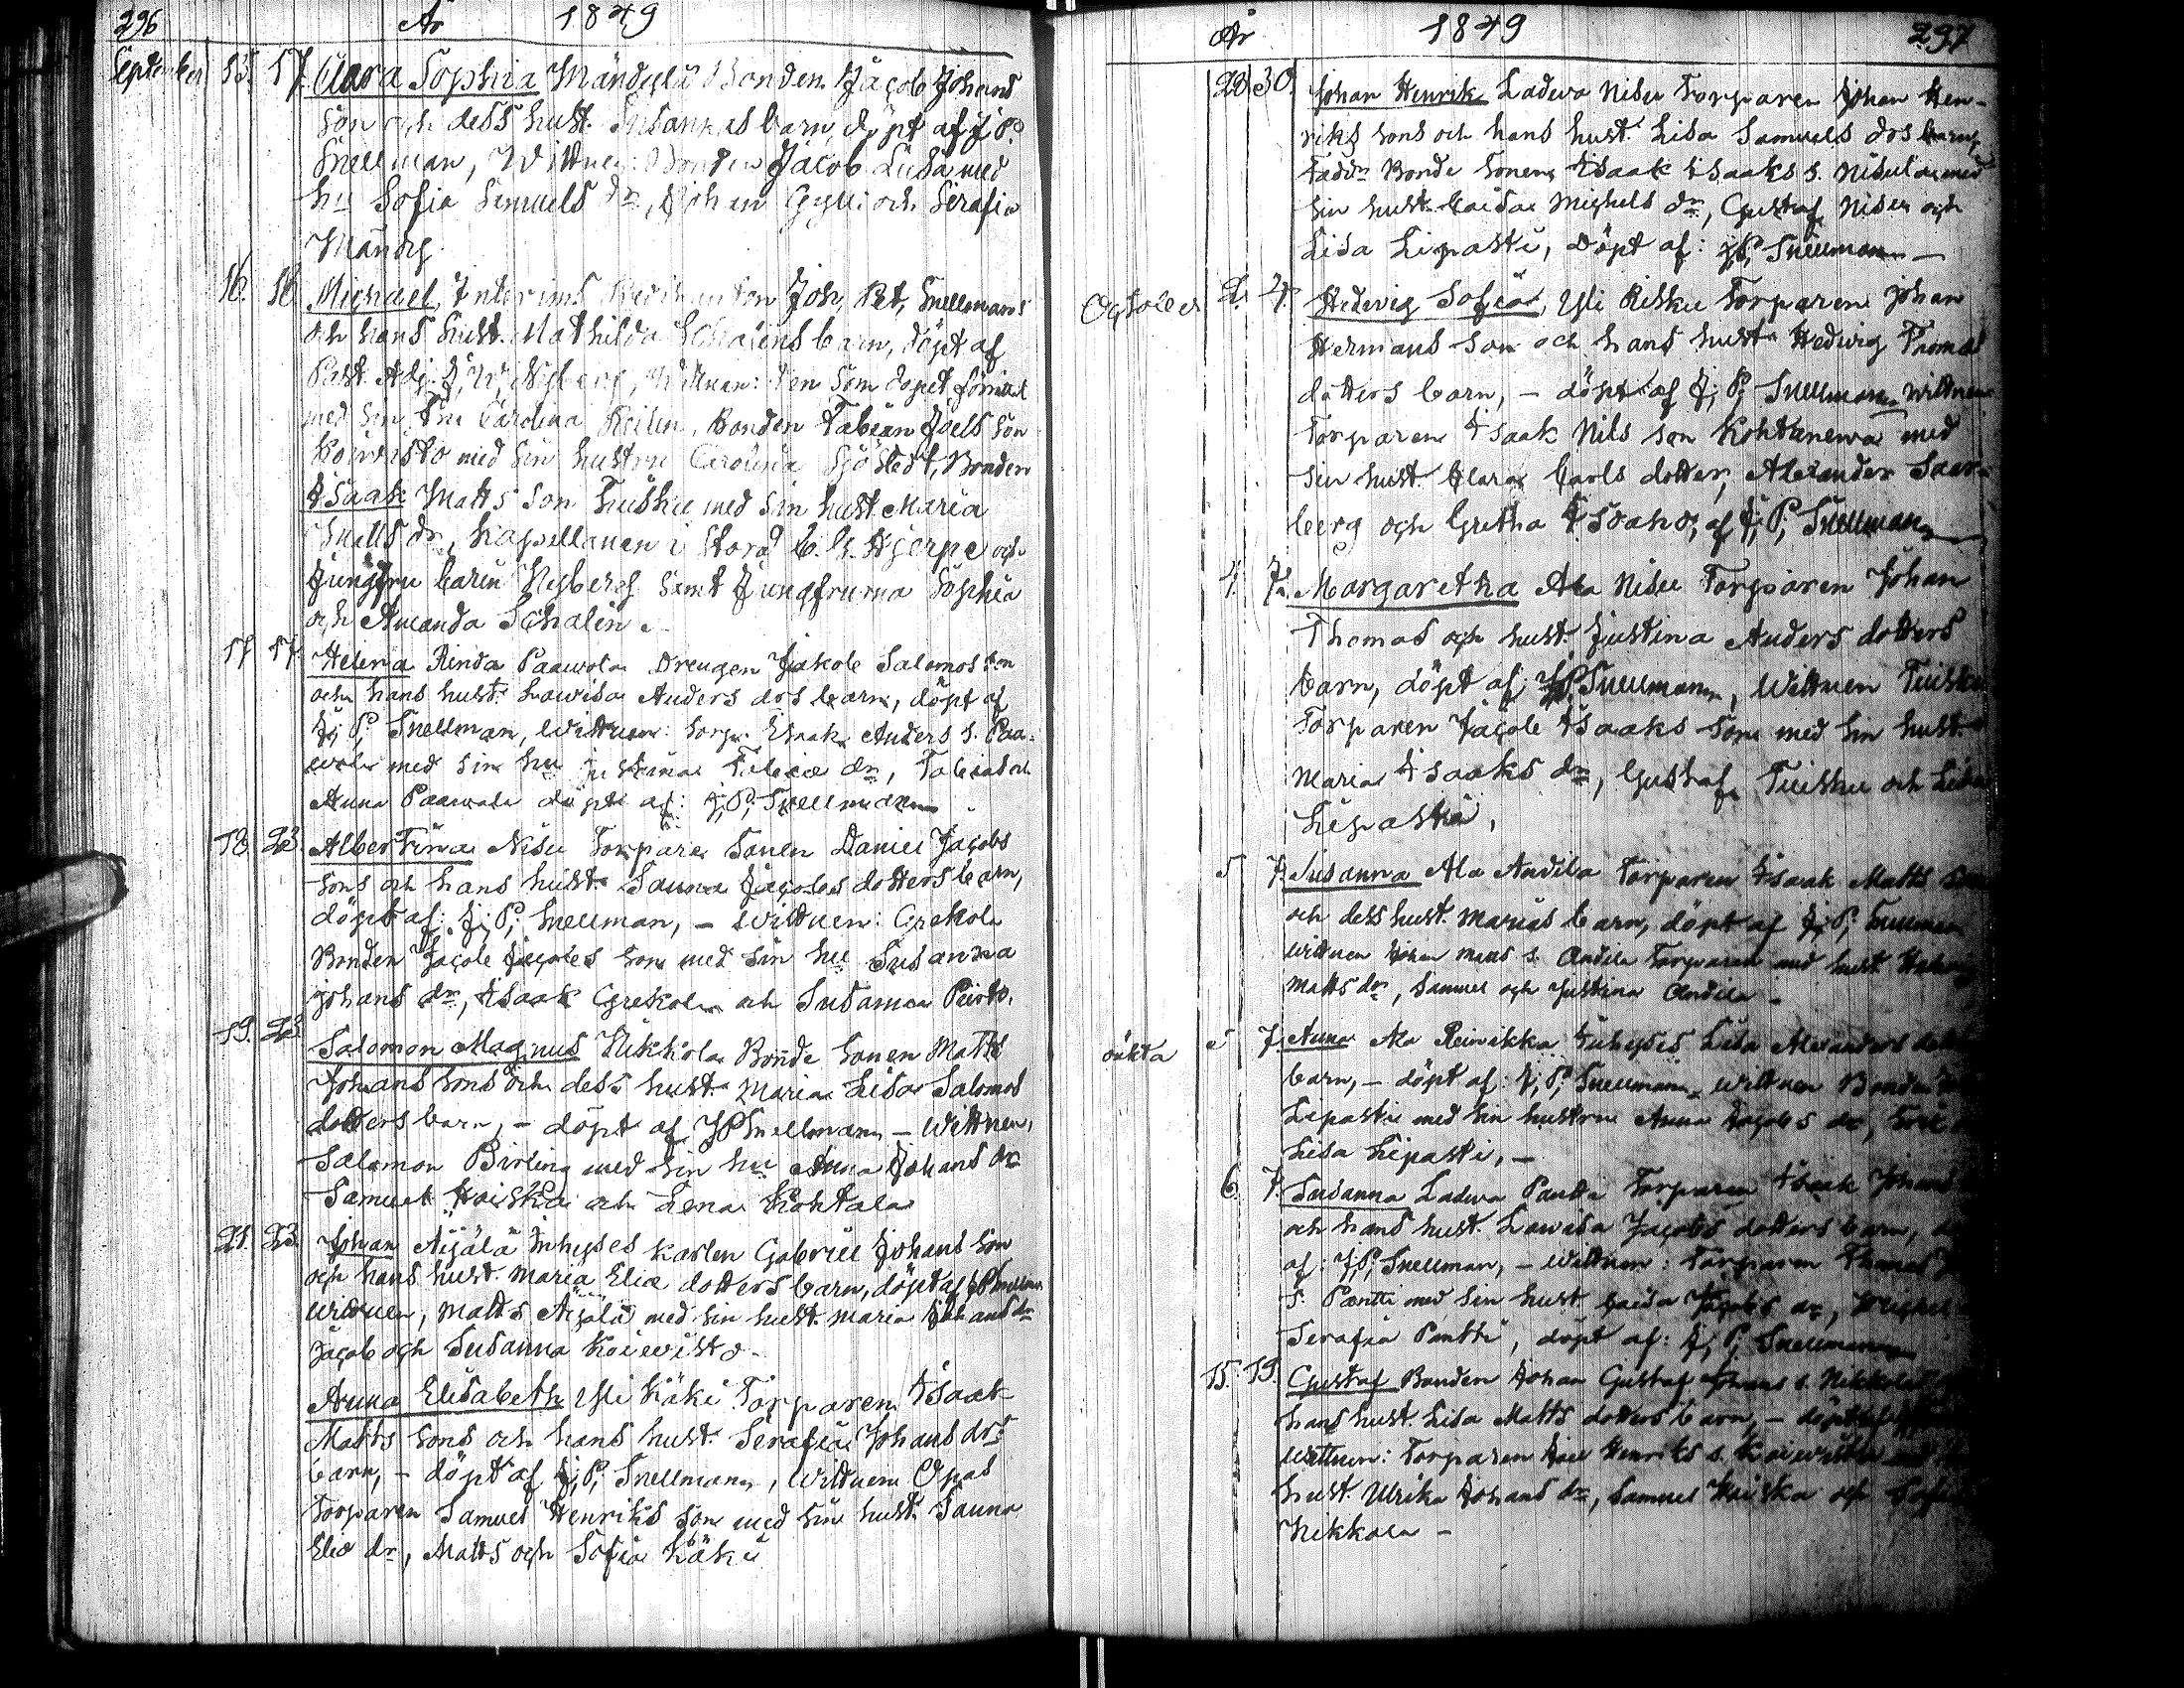 296 År 1849
September 15. 17. Clara Sophia Mändylä Bonden Jacob Johans
son och dess hust. Susannas barn, döpt af J. P.
Snellman, Wittnen: Bonden Jacob med
hu Sofia Samuels dr, Johan Gylli och Serafia
Mändy
16. 16. Michael, Interims Predikanten Joh. Pet. Snellmans
och hans hust. Mathilda Schalins barn, döpt af
Past. Adj. J. W. Nyberg, Wittnen: den som dopet förrättat
med sin Fru Carolina, Bonden Fabian Joels son
Koiwisto med sin hustru Carolina Sjöstedt, Bonden
Isaak Matts son Tuisku med sin hust. Maria
Matts dr, Kapellanen i Storå C. G. Hjerpe och
Jungfru Carin Nyberg samt Jungfrurna Sophia
och Amanda Schalin.
17 17. Helena Rinda Paawola Drengen Jakob Salomos son
och hans hust. Lowisa Anders drs barn, döpt af
J. P. Snellman, Wittnen: torp. Isaak Anders s. Paa-
wola med sin hu Justina Fabia dr, Fabian och
Anna Paawola döpt af: J. P. Snellman
18. 23. Albertina Nisu Torpare Sonen Daniel Jacobs
sons och hans hust. Sanna Jacobs dotters barn,
döpt af: J. P. Snellman, – Wittnen: Grekola
Bonden Jacob Jacobs son med sin hu Susanna
Johans dr, Isaak Grekola och Susanna
19. 23. Salomon Magnus Ylikkola Bonde Sonen Matts
Johans sons och dess hust. Maria Lisa Salomos
dotters barn, – döpt af JPSnellman – Wittnen,
Salomon Birling med sin hu Anna Johans dr
Samuel Kaiska och Lena Kohtala
21. 23. Johan Äijälä Inhyses karlen Gabriel Johans son
och hans hust. Maria Elia dotters barn, döpt af JPSnellman
wittnen, Matts Äijälä med sin hust. Maria Johans dr
Jacob och Susanna Koiwisto.
Anna Elisabeth Yli Käki Torparen Isaak
Matts sons och hans hust. Serafia Johans drs
barn, – döpt af J. P. Snellman, Wittnen Opas
torparen Samuel Henriks son med sin hust. Sanna
Elia dr, Matts och Sofia Käki
År 1849 297
28. 30. Johan Henrik Ladwa Nisu Torparen Johan Hen-
riks sons och hans hust. Lisa Samuels drs barn,
Faddr Bonde Sonen Isaak Isaaks s. Nisula med
sin hust. Caisa Michels dr, Gustaf Nisu och
Lisa Lipasti, döpt af: J. P. Snellman –
October 2. 4. Hedvig Sofia, Yli Risku Torparen Johan
Hermans son och hans hust. Hedwig Thomas
dotters barn, – döpt af J. P. Snellman, Wittnen
Torparen Isaak Nils son Kohtanewa med
sin hust. Clara Carls dotter, Alexander Saar-
berg och Gretha Isoaho, af J. P. Snellman
4. 7. Margaretha Ala Nisu Torparen Johan
Thomas och hust. Justina Anders dotters
barn, döpt af JPSnellman, Wittnen Tuisku
Torparen Jacob Isaaks son med sin hust.
Maria Isaaks dr, Gustaf Tuisku och Lisa
Lipasti,
5 7. Susanna Ala Andila Torparen Isaak Matts son
och dess hust. Marias barn, döpt af J. P. Snellman
wittnen Johan Matts s. Andila Torparen med hust.
Matts dr, Samuel och Justina Andila –
oäkta 5 7. Anna Ala Reinikka Inhyses Lisa Alexanders
barn, – döpt af: J. P. Snellman, Wittnen Bonden
Lipasti med sin hustru Anna Jacobs dr,
Lisa Lipasti, –
6. 7. Susanna Ladwa Pantti Torparen Isaak Johans
och hans hust. Lowisa Jacobs dotters barn,
af: J. P. Snellman, – Wittnen: Torparen Thomas
s. Pantti med sin hust. Caisa Jacobs dr,
Serafia Pantti, döpt af: J. P. Snellman
15. 19. Gustaf Bonden Johan Gustaf Johans s. Nikkola
hans hust. Lisa Matts dotters barn, – döpt af
Wittnen: Torparen Joel Henriks s. Koiwisto
hust. Ulrika Johans dr, Samuel Kaiska och
Nikkola –